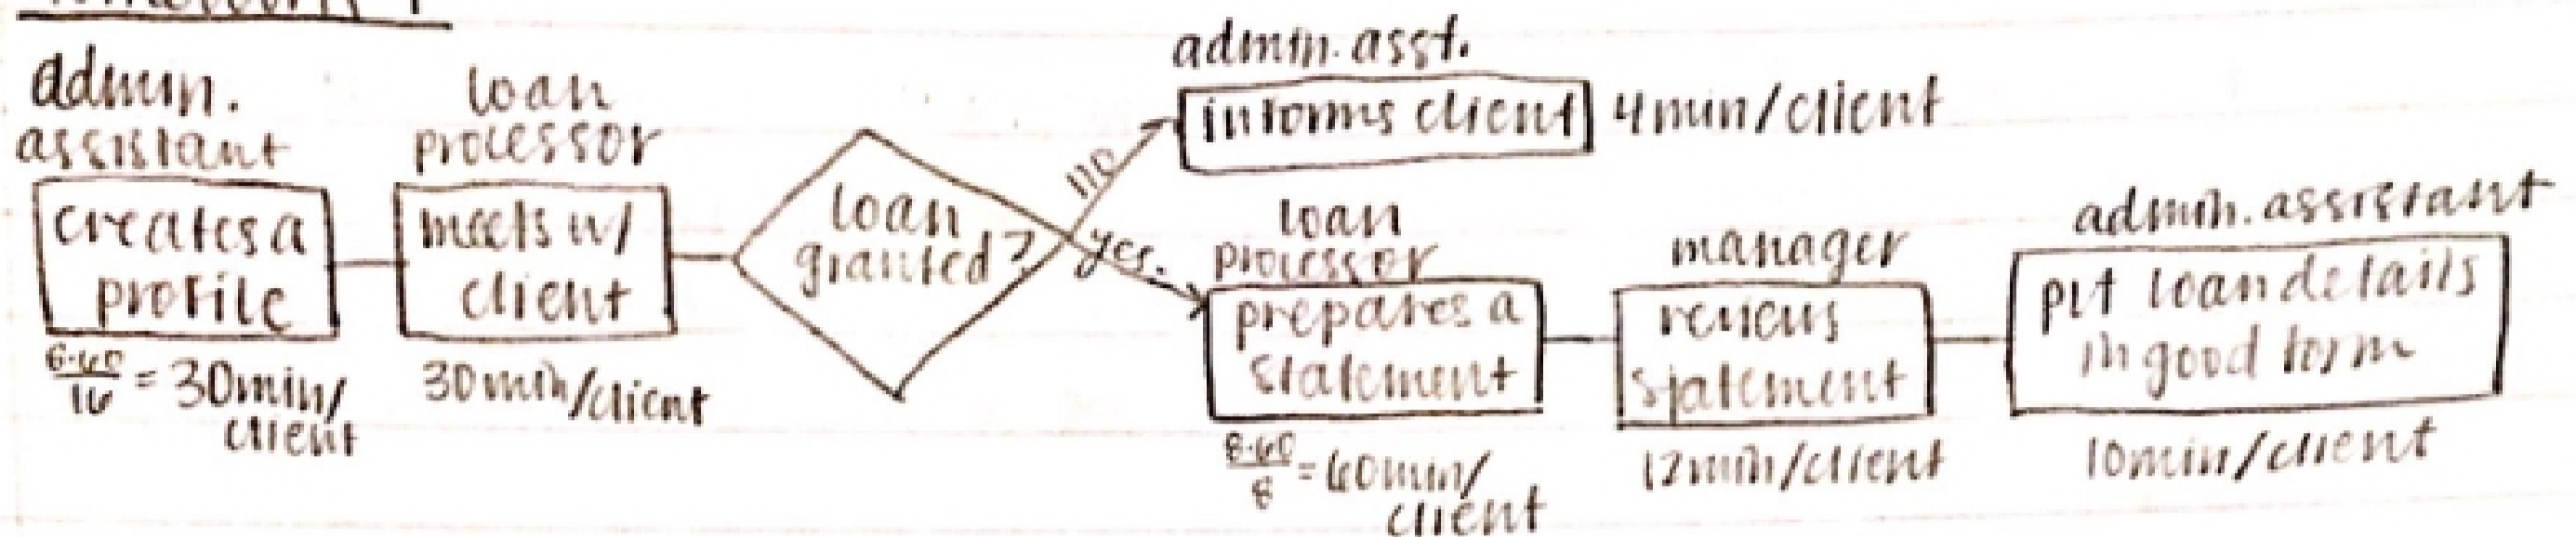 admin.
assistant
creates a
profile
8·60
16
= 30min/
client
loan
processor
meets w/
client
30min/client
loan
granted?
no
admin. asst.
informs client
4min/client
yes.
loan
processor
prepares a
statement
8·60
8
= 60min/
client
manager
reviews
statement
12min/client
admin. assistant
put loan details
in good form
10min/client